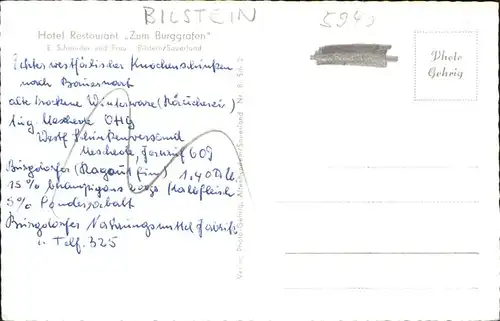 BILSTEIN
594
Hotel Restaurant „Zum Burggrafen"
E. Schneider und Frau Bilstein/Sauerland
Photo
Gehrig
Echter westfälischer Knochenschinken
nach Bauernart
alte trockene Winterware (Räucherei)
Aug. Meschede OHG
Westf. Schinkenversand
Meschede, Fernruf 609
Burgdorfer (Ragout fin) 1.40 DM
15% Champignons Kalbfleisch
5%
Burgdorfer Nahrungsmittel Fabrik
Telf. 325
Verlag Photo-Gehrig, Sauerland Nr. B.